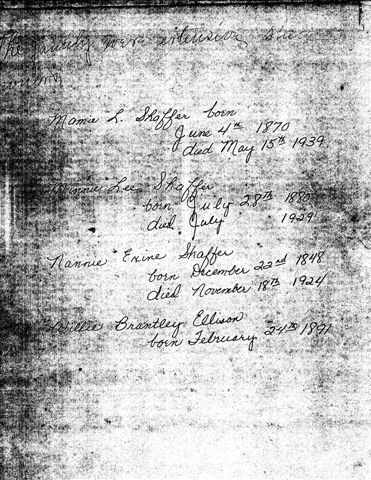 The family were
Mamie L. Shaffer born
June 4th 1870
died May 15th 1939
Minnie Lee Shaffer
born July 28th 1880
died July 1929
Nannie Exine Shaffer
born December 22nd 1848
died November 18th 1924
Willie Brantley Ellison
born February 24th 1891